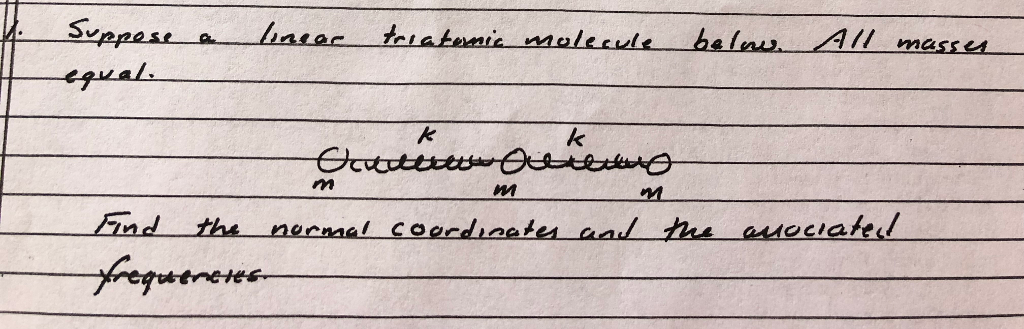 1. Suppose a linear triatomic molecule below. All masses
equal.
k k
m m m
Find the normal coordinates and the associated
frequencies.